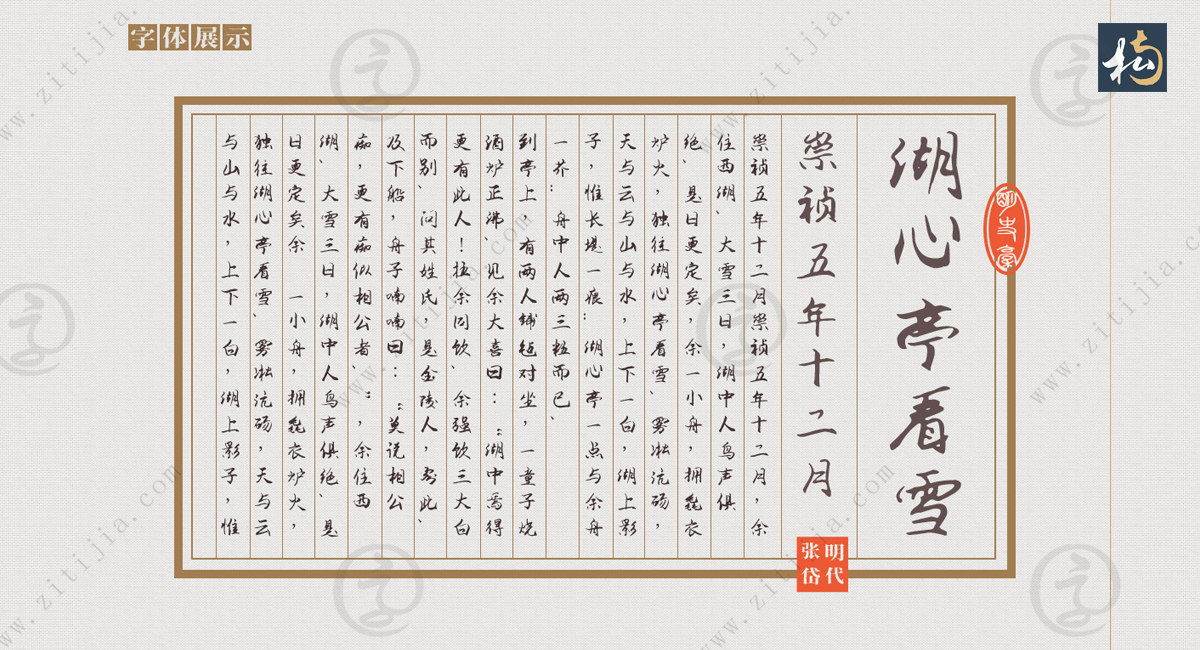 字体展示
湖心亭看雪
崇祯五年十二月
崇祯五年十二月崇祯五年十二月，余
住西湖、大雪三日，湖中人鸟声俱
绝、是日更定矣，余一小舟，拥毳衣
炉火，独往湖心亭看雪、雾凇沆砀，
天与云与山与水，上下一白，湖上影
子，惟长堤一痕；湖心亭一点与余舟
一芥；舟中人两三粒而已、
到亭上，有两人铺毡对坐，一童子烧
酒炉正沸、见余大喜曰：“湖中焉得
更有此人！拉余同饮、余强饮三大白
而别、问其姓氏，是金陵人，客此、
及下船，舟子喃喃曰：“莫说相公
痴，更有痴似相公者、”，余住西
湖、大雪三日，湖中人鸟声俱绝、是
日更定矣余 一小舟，拥毳衣炉火，
独往湖心亭看雪、雾凇沆砀，天与云
与山与水，上下一白，湖上影子，惟
明代
张岱
www.zitijia.com